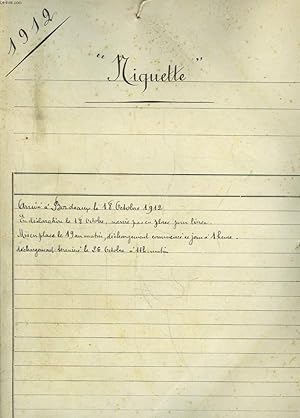 1912
"Niquette"
Arrivé à Bordeaux le 18 Octobre 1912
En déclaration le 18 Octobre, navire pas en place pour livrer.
Mis en place le 19 au matin, déchargement commencé ce jour à 1 heure.
déchargement terminé le 26 Octobre à 11h matin